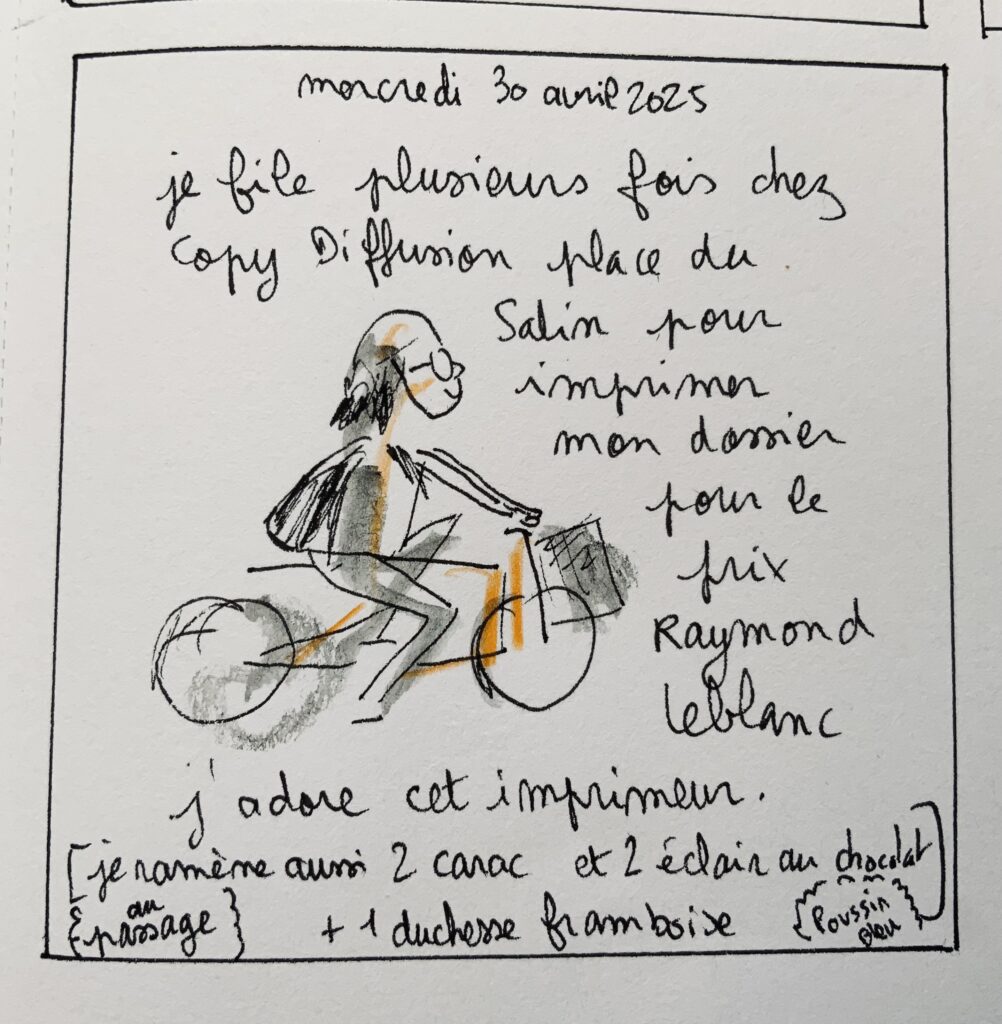 mercredi 30 avril 2025
je file plusieurs fois chez
Copy Diffusion place du
Salin pour
imprimer
mon dossier
pour le
prix
Raymond
Leblanc
j'adore cet imprimeur.
[je ramène aussi 2 carac et 2 éclair au chocolat]
{au passage} + 1 duchesse framboise {Poussin Bleu}